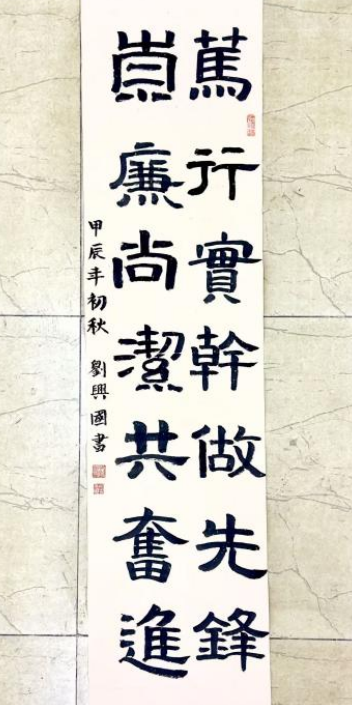 篤行實幹做先鋒
崇廉尚潔共奮進
甲辰年初秋 劉興國書